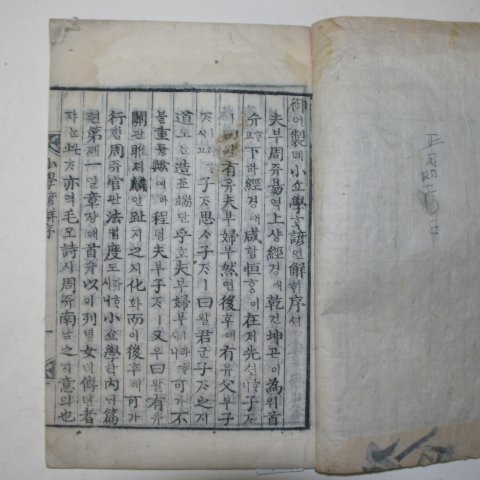 御어製졔小쇼學ᄒᆞᆨ諺언解ᄒᆡ序셔
夫부周쥬易역上샹經경애乾건坤곤이為위首
슈ᄒᆞ고下하經경애咸함恒ᄒᆞᆼ이在ᄌᆡ先션ᄒᆞ니子ᄌᆞ
ㅣ曰왈有유夫부婦부然연後후에有유父부子
ᄌᆞㅣ라ᄒᆞ시고子ᄌᆞ思ᄉᆞ子ᄌᆞㅣ曰왈君군子ᄌᆞ之지
道도ᄂᆞᆫ造조端단乎호夫부婦부ㅣ라ᄒᆞ시니可가不
블重듕歟여아程뎡夫부子ᄌᆞㅣ又우曰왈有유
關관雎져麟린趾지之지化화而이後후에可가
行ᄒᆡᆼ周쥬官관法법度도ㅣ라ᄒᆞ시니小쇼學ᄒᆞᆨ內ᄂᆡ篇
편第뎨一일章쟝애首슈以이列녈女녀傳뎐者
쟈ᄂᆞᆫ此ᄎᆞㅣ亦역毛모詩시周쥬南남之지意의也
小學諺解序